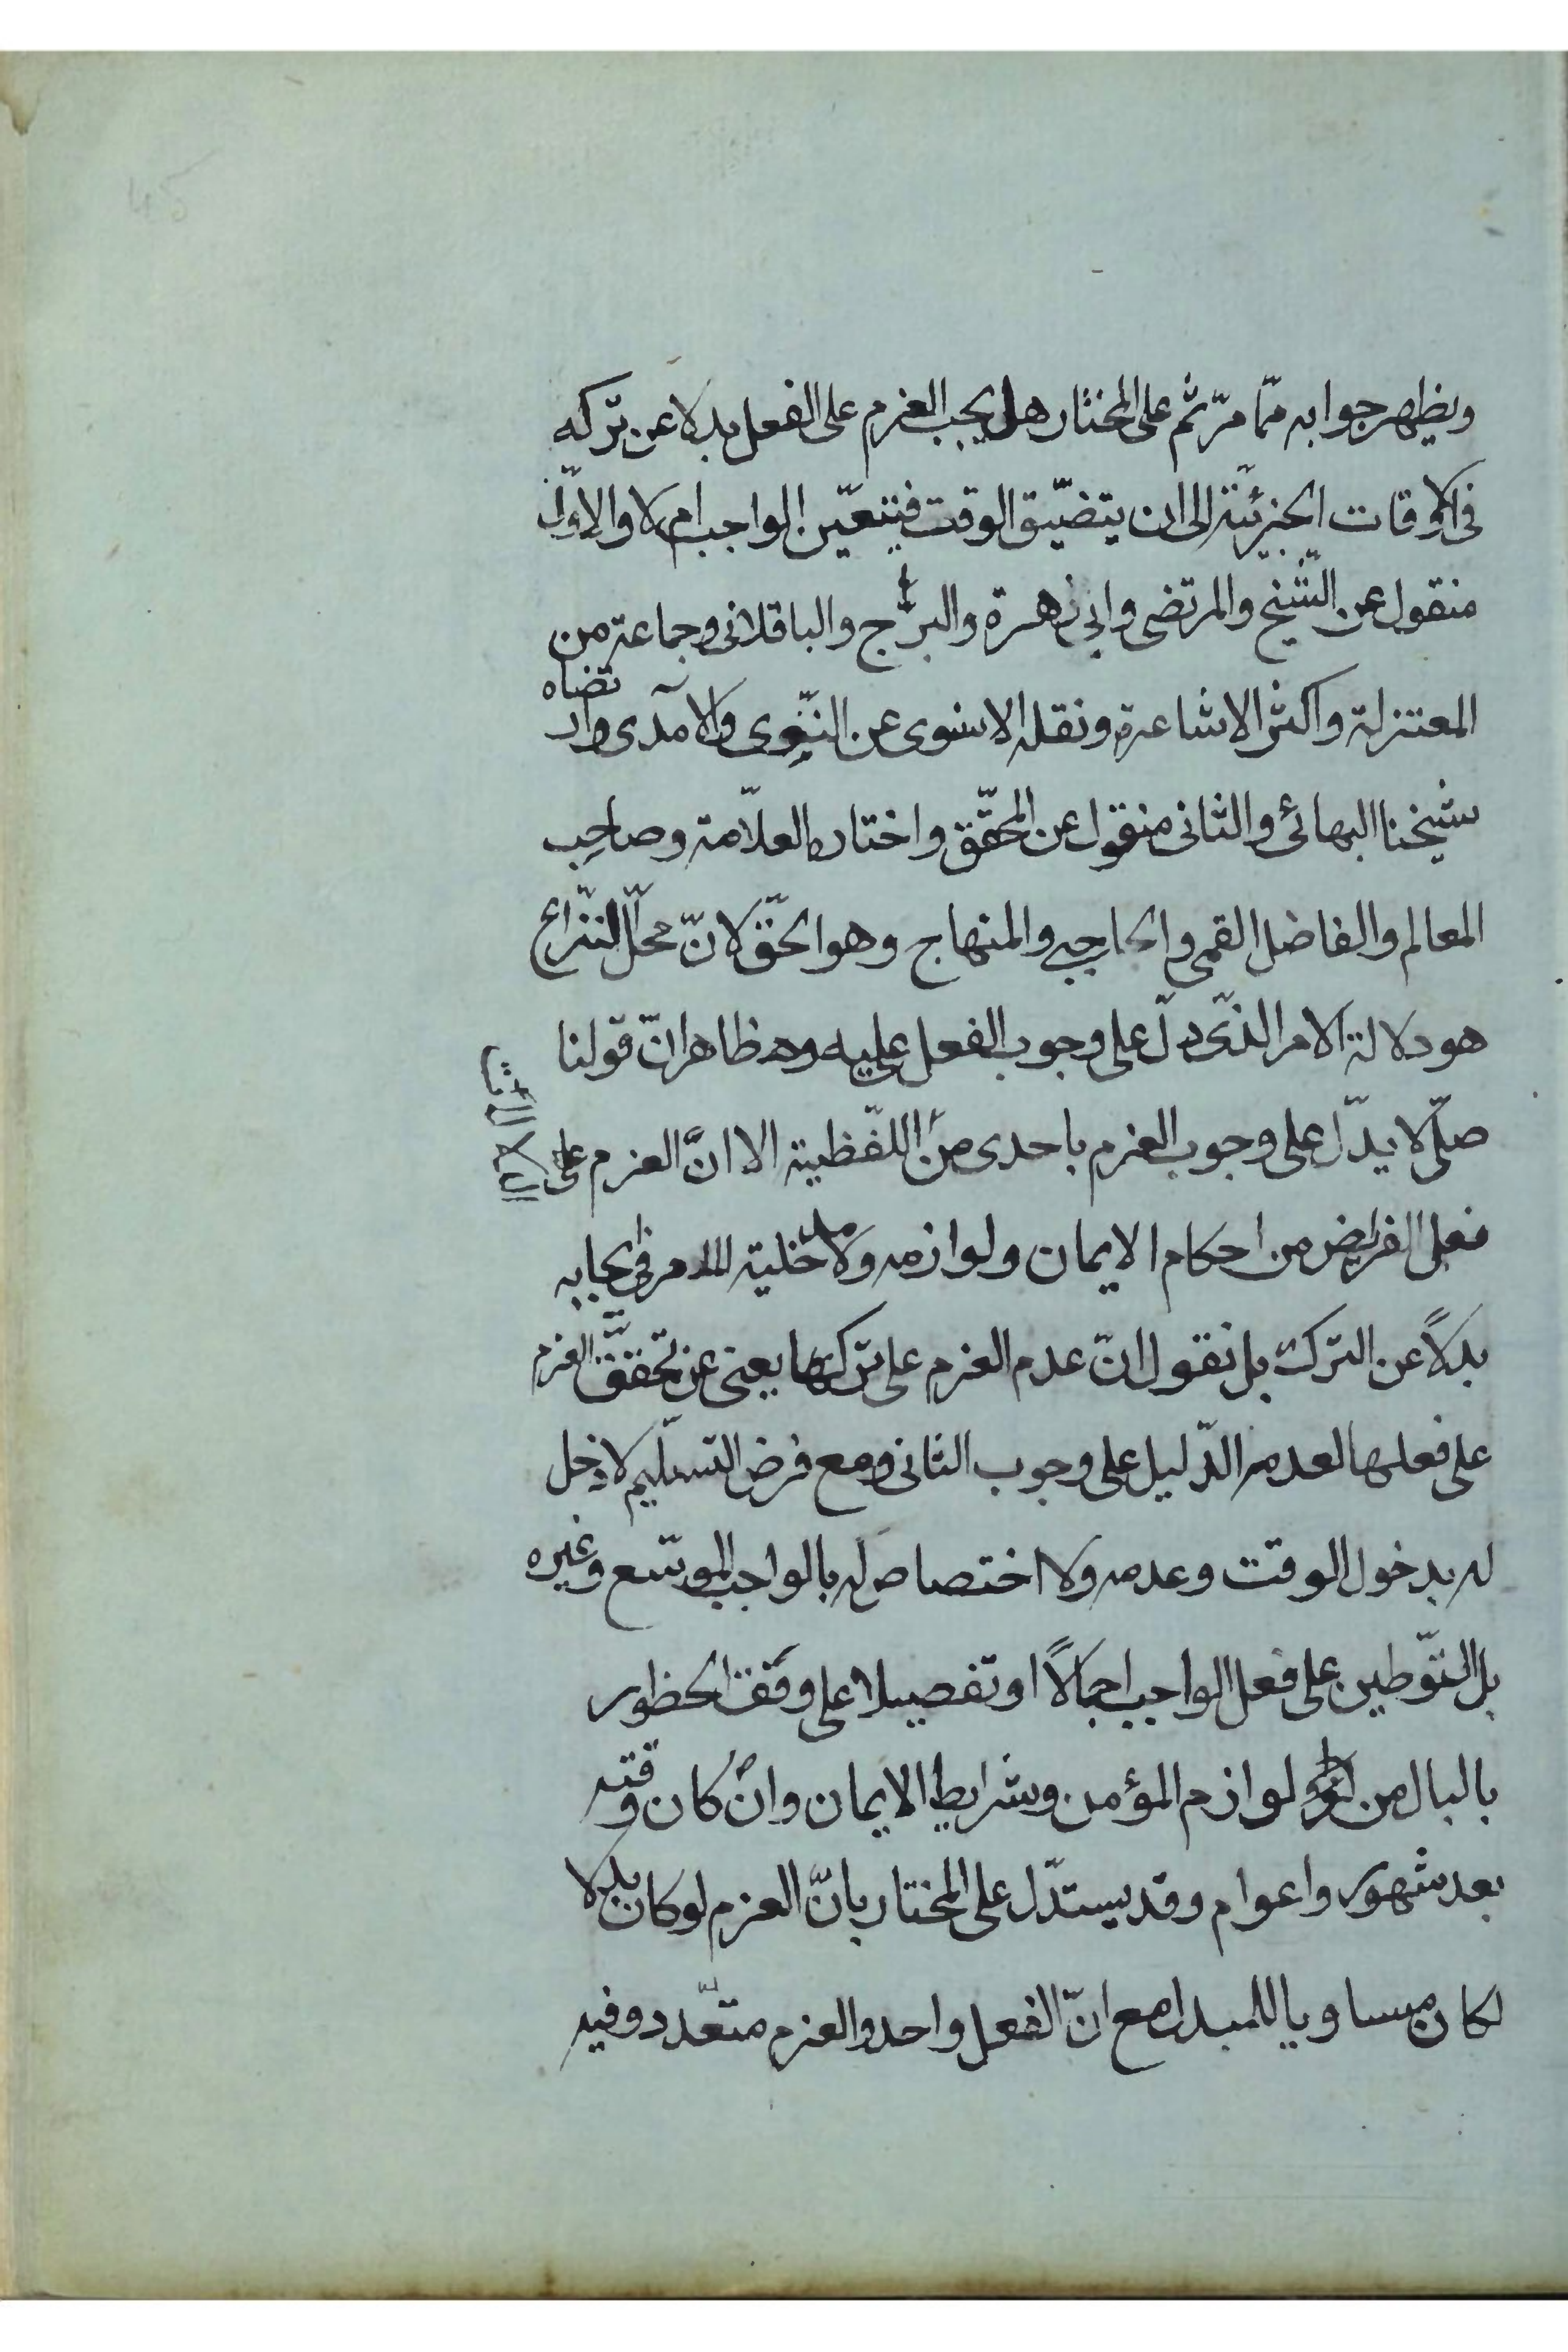 ويظهر جوابه ممّا مرّ ثم على المختار هل يجب العزم على الفعل بدلا عن تركه
فى الاوقات الجزئيّة الى ان يتضيّق الوقت فيتعيّن الواجب ام لا والاوّل
منقول عن الشّيخ والمرتضى وابى زهرة والبرّاج والباقلانى وجماعة من
المعتزلة واكثر الاشاعرة ونقله الاسنوى عن النّووى والآمدى وارتضاه
شيخنا البهائى والثانى منقول عن المحقّق واختاره العلّامة وصاحب
المعالم والفاضل القمى والحاجبى والمنهاج وهو الحقّ لانّ محلّ النّزاع
هو دلالة الامر الذّى دلّ على وجوب الفعل عليه وهو ظاهر انّ قولنا
صلّ لا يدّل على وجوب العزم باحدى من اللّفظية الا انّ العزم على
فعل الفرايض من احكام الايمان ولوازمه ولا مدخلية للامر فى ايجابه
بدلاً عن الترك بل نقول انّ عدم العزم على تركها يعنى عن تحقّق العزم
على فعلها لعدم الدّليل على وجوب الثانى ومع فرض التسليم لا دخل
له بدخول الوقت وعدمه ولا اختصاص له بالواجب الموسّع وغيره
بل التّوطين على فعل الواجب اجمالاً او تفصيلا على وفق الخطور
بالبال من لوازم المؤمن وشرايط الايمان وان كان وقته
بعد شهور واعوام وقد يستدّل على المختار بانّ العزم لو كان بدلا
لكان مساويا للمبدل مع انّ الفعل واحد والعزم متعّدد وفيه